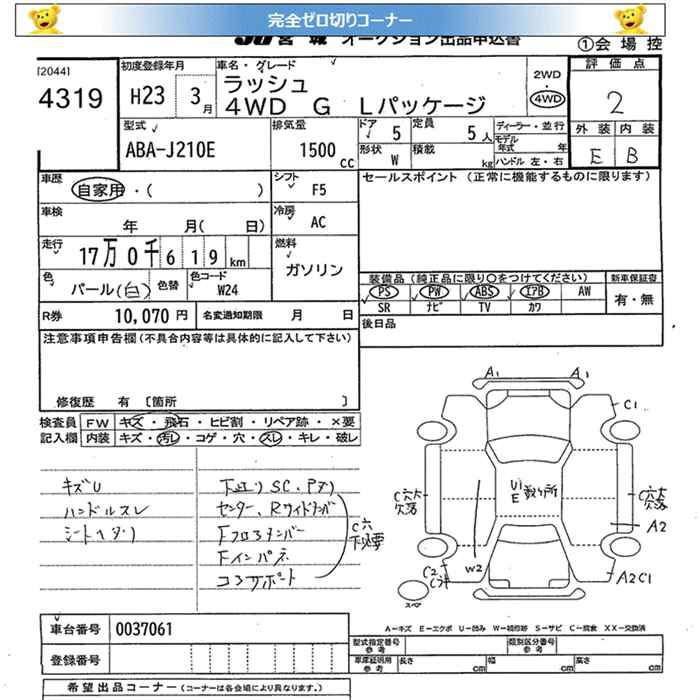 完全ゼロ切りコーナー
JU宮城 オークション出品申込書
①会場控
[2044]
4319
初度登録年月
H23 3月
車名・グレード
ラッシュ
4WD G Lパッケージ
2WD
・
4WD
評価点
2
外装 内装
E B
型式
ABA-J210E
排気量
1500 cc
ドア 5
定員 5人
形状 W
積載 kg
ディーラー・並行
モデル年式 年
ハンドル 左・右
車歴
自家用・( )
シフト F5
セールスポイント (正常に機能するものに限ります)
車検
年 月( 日)
冷房 AC
走行
17万0千619km
燃料
ガソリン
色
パール(白)
色替
色コード
W24
装備品(純正品に限り○をつけてください)
新車保証書
PS PW ABS エアB AW
SR ナビ TV カワ
有・無
R券 10,070円
名変通知期限 月 日
後日品
注意事項申告欄(不具合内容等は具体的に記入して下さい)
修復歴 有 [箇所 ]
検査員記入欄
FW キズ・飛石・ヒビ割・リペア跡・×要
内装 キズ・汚レ・コゲ・穴・スレ・キレ・破レ
キズU
ハンドルスレ
シートヘタリ
下廻りSC、Pサリ
センター、Rサイドメンバー
Fクロスメンバー
Fインパネ
コアサポート
C穴
A1 A1
C1
C穴大
欠落
U1
E 数ヶ所
C穴大
欠落
A2
W2
C2
A2C1
スペア
A-キズ E-エクボ U-凹み W-補修跡 S-サビ C-腐食 XX-交換済
車台番号 0037061
登録番号
型式指定番号
参考
類別区分番号
参考
車庫証明用
参考
長さ cm
幅 cm
高さ cm
希望出品コーナー (コーナーは各会場により異なります。)